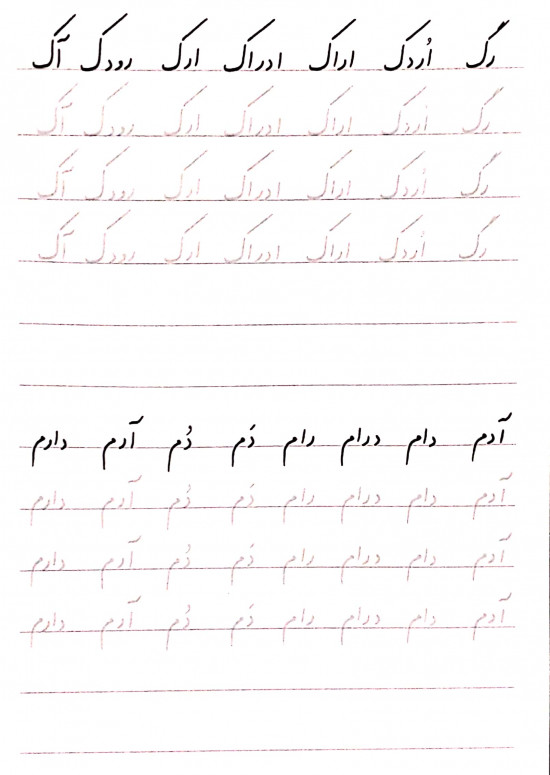 رگ اُردک اراک ادراک ارک رودک آک
رگ اُردک اراک ادراک ارک رودک آک
رگ اُردک اراک ادراک ارک رودک آک
رگ اُردک اراک ادراک ارک رودک آک
آدم دام درام رام دَم دُم آرم دارم
آدم دام درام رام دَم دُم آرم دارم
آدم دام درام رام دَم دُم آرم دارم
آدم دام درام رام دَم دُم آرم دارم